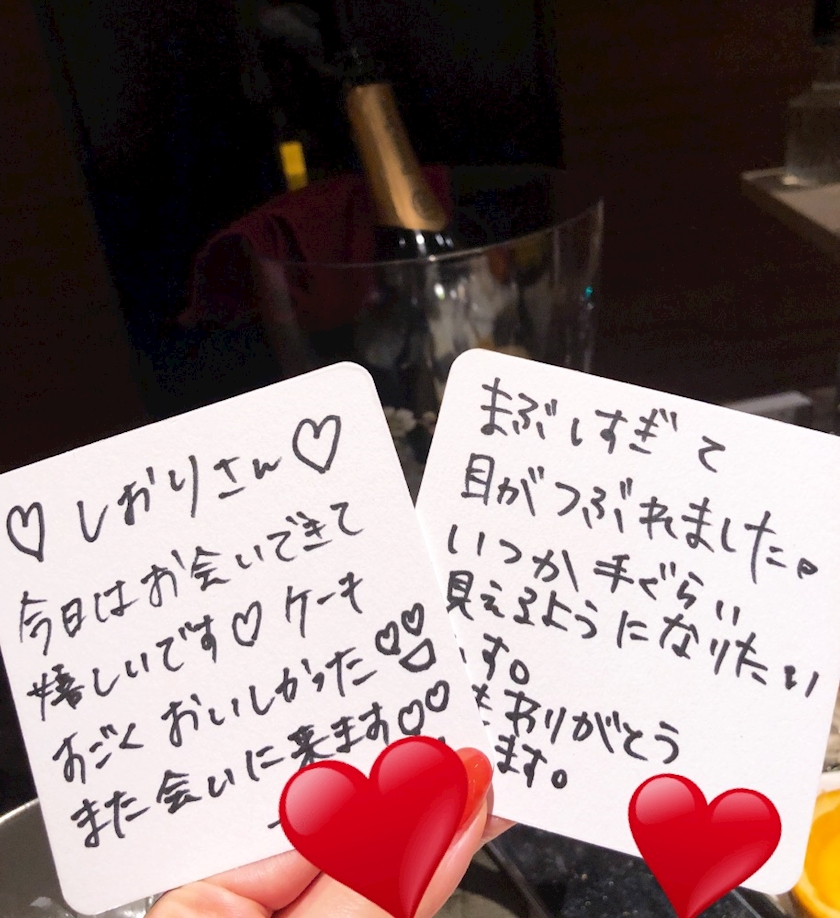 ♡ しおりさん♡
今日はお会いできて
嬉しいです♡ ケーキ
すごく おいしかった
また会いに来ます♡♡
まぶしすぎて
目がつぶれました。
いつか手ぐらい
見えるようになりたい
す。
ありがとう
ます。